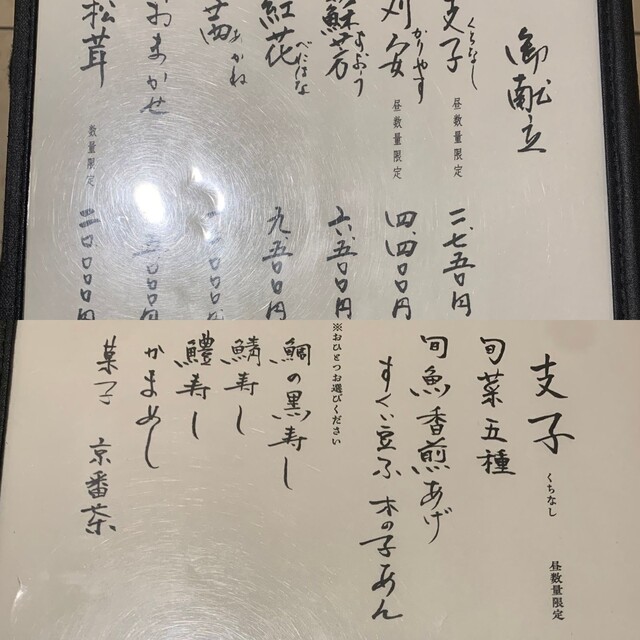 御献立
支子 くちなし 昼数量限定 二、七五〇円
刈安 かりやす 昼数量限定 四、四〇〇円
蘇芳 すおう 六、五〇〇円
紅花 べにばな 九、五〇〇円
茜 あかね
おまかせ
松茸 数量限定 二〇〇〇〇円
支子 くちなし 昼数量限定
旬菜五種
旬魚香煎あげ
すくい豆ふ 木の子あん
※おひとつお選びください
鯛の黒寿し
鯖寿し
鱧寿し
かまめし
菓子 京番茶